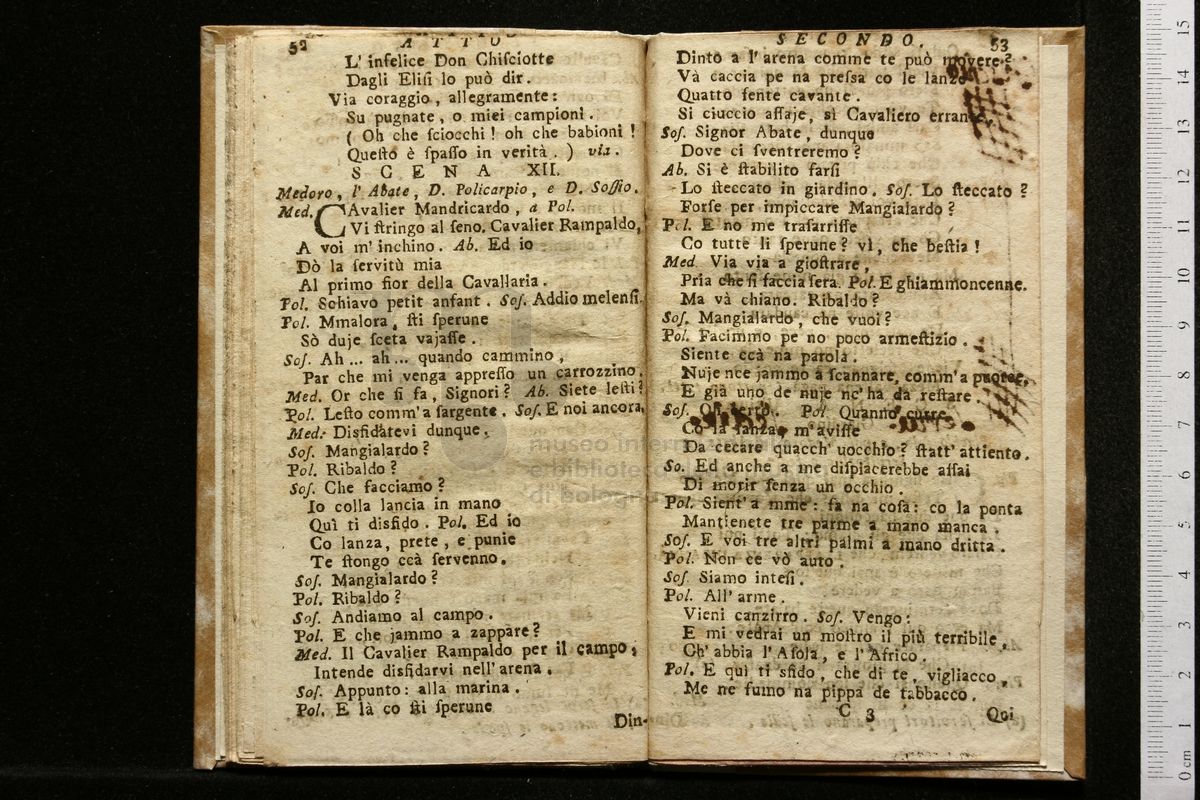 52
ATTO
L' infelice Don Chiſciotte
Dagli Eliſi lo può dir.
Via coraggio, allegramente:
Su pugnate, o miei campioni.
( Oh che ſciocchi! oh che babioni!
Queſto è ſpaſſo in verità. ) via.
SCENA XII.
Medoro, l' Abate, D. Policarpio, e D. Soſſio.
Med. CAvalier Mandricardo, a Pol.
Vi ſtringo al ſeno. Cavalier Rampaldo,
A voi m' inchino. Ab. Ed io
Dò la ſervitù mia
Al primo fior della Cavallaria.
Pol. Schiavo petit anfant. Soſ. Addio melenſi.
Pol. Mmalora, ſti ſperune
Sò duje ſceta vajaſſe.
Soſ. Ah ... ah ... quando cammino,
Par che mi venga appreſſo un carrozzino.
Med. Or che ſi fa, Signori? Ab. Siete leſti?
Pol. Leſto comm' a ſargente. Soſ. E noi ancora.
Med. Disfidatevi dunque.
Soſ. Mangialardo?
Pol. Ribaldo?
Soſ. Che facciamo?
Io colla lancia in mano
Quì ti disfido. Pol. Ed io
Co lanza, prete, e punie
Te ſtongo ccà ſervenno.
Soſ. Mangialardo?
Pol. Ribaldo?
Soſ. Andiamo al campo.
Pol. E che jammo a zappare?
Med. Il Cavalier Rampaldo per il campo,
Intende disfidarvi nell' arena.
Soſ. Appunto: alla marina.
Pol. E là co ſti ſperune
Din-
SECONDO.
53
Dinto a l' arena comme te può movere?
Và caccia pe na preſsa co le lanze
Quatto ſente cavante.
Si ciuccio aſſaje, sì Cavaliero errante.
Soſ. Signor Abate, dunque
Dove ci ſventreremo?
Ab. Si è ſtabilito farſi
Lo ſteccato in giardino. Soſ. Lo ſteccato?
Forſe per impiccare Mangialardo?
Pol. E no me traſarriſſe
Co tutte li ſperune? vì, che beſtia!
Med. Via via a gioſtrare,
Pria che ſi faccia ſera. Pol. E ghiammoncenne.
Ma và chiano. Ribaldo?
Soſ. Mangialardo, che vuoi?
Pol. Facimmo pe no poco armeſtizio.
Siente ccà na parola.
Nuje nce jammo a ſcannare, comm' a puorce,
E già uno de nuje nc' ha da reſtare.
Soſ. Oh certo. Pol. Quanno curre
Co la lanza, m' aviſſe
Da cecare quacch' uocchio? ſtatt' attiento.
So. Ed anche a me diſpiacerebbe aſſai
Di morir ſenza un occhio.
Pol. Sient' a mme: fa na coſa: co la ponta
Mantienete tre parme a mano manca.
Soſ. E voi tre altri palmi a mano dritta.
Pol. Non ce vò auto.
Soſ. Siamo inteſi.
Pol. All' arme.
Vieni canzirro. Soſ. Vengo:
E mi vedrai un moſtro il più terribile,
Ch' abbia l' Aſola, e l' Africo.
Pol. E quì ti sfido, che di te, vigliacco,
Me ne fumo na pippa de tabbacco.
C 3
Qoi